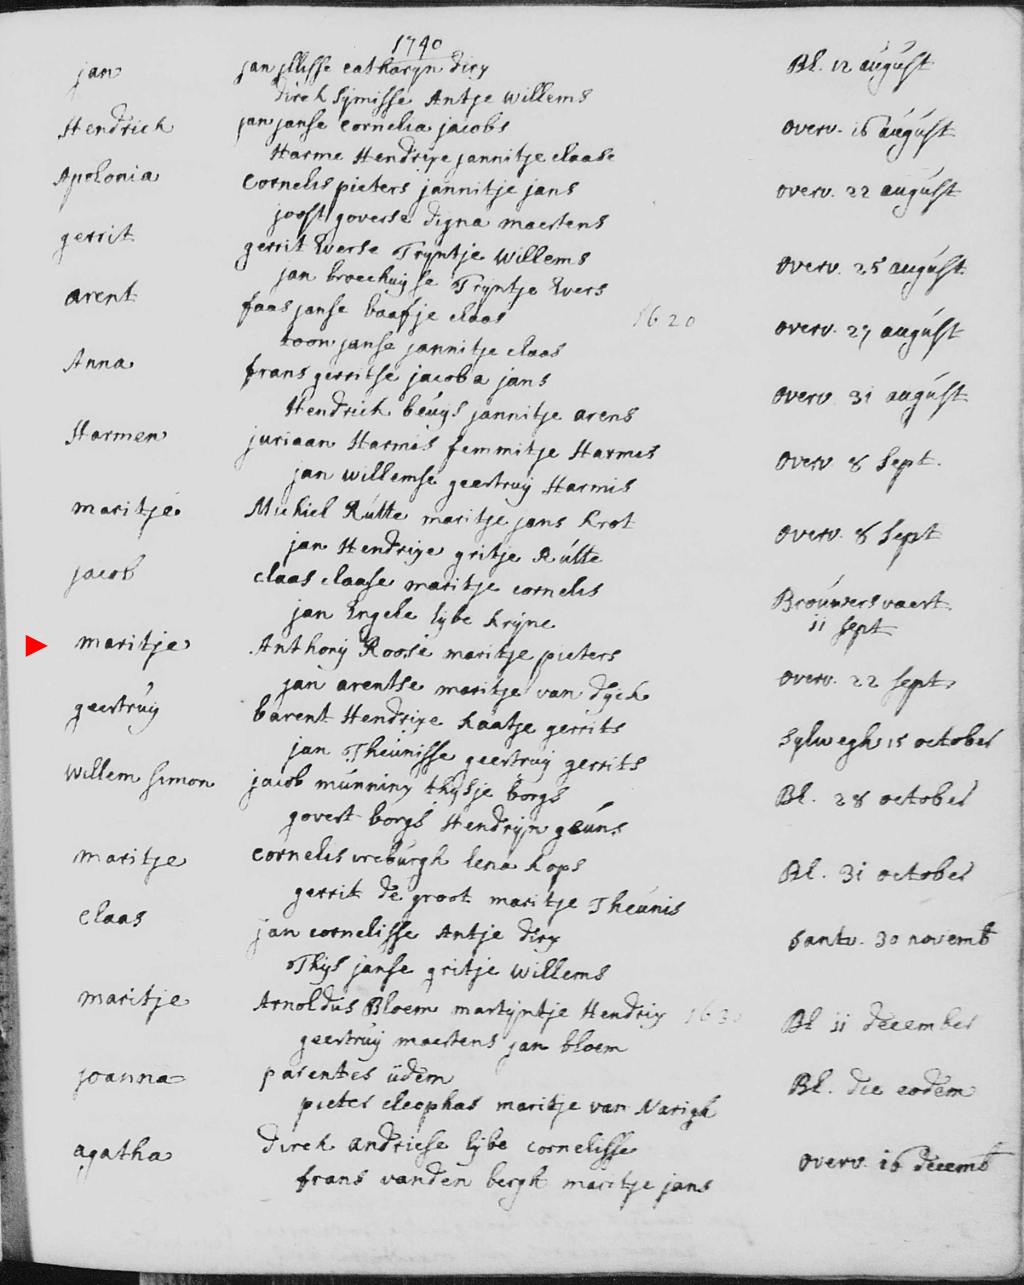 1740
jan jan jllisse catharyn dirx Bl. 12 august
dirck sijmisse Antje willems
Hendrick jan janse cornelia jacobs overv. 16 august
Harme Hendrixe jannitje claase
Apolonia cornelis pieters jannitje jans overv. 22 august
joost goverse digna maertens
gerrit gerrit Everse Tryntje willems overv. 25 august
jan broeckuyse Tryntje Evers
arent faas janse baafje claas 1620 overv. 27 august
toon janse jannitje claas
Anna frans gerritse jacoba jans overv. 31 august
Hendrick beuys jannitje arens
Harmen juriaan Harmis femmitje Harmes overv. 8 Sept.
jan willemse geertruy Harmis
maritje Michiel Rútte maritje jans krot overv. 8 Sept
jan Hendrixe gritje Rútte
jacob claas claase maritje cornelis Brouwersvaert
jan Engele lijbe krijne 11 Sept
maritje Anthonij Roose maritje pieters overv. 22 sept.
jan arentse maritje van dyck
geertruy barent Hendrixe kaatje gerrits sylwegh 15 october
jan Theunisse geertruy gerrits
willem simon jacob munninx thysje borgs Bl. 28 october
govert borgs Hendryn geuns
maritje cornelis vreburgh lena kops Bl. 31 october
gerrit de groot maritje Theunis
claas jan cornelisse Antje dirx santv. 30 novemb
Thys janse gritje willems
maritje Arnoldus Bloem martyntje Hendrix 1630 Bl 11 december
geertruy maertens jan bloem
joanna parentes iidem Bl. die eodem
pieter cleophas maritje van Narigh
agatha dirck andriese lijbe cornelisse overv. 16 decemb
frans vanden bergh maritje jans